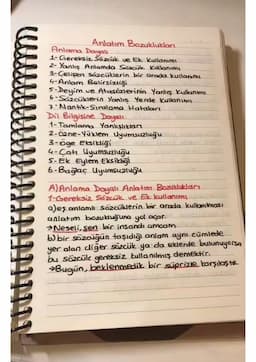 Anlatım Bozuklukları
Anlama Dayalı
1- Gereksiz Sözcük ve Ek Kullanımı
2- Yanlış Anlamda Sözcük Kullanımı
3- Çelişen Sözcüklerin bir arada kullanımı
4- Anlam Belirsizliği
5- Deyim ve Atasözlerinin Yanlış Kullanımı
6- Sözcüklerin Yanlış Yerde Kullanımı
7- Mantık-Sıralama Hataları
Dil Bilgisine Dayalı
1- Tamlama Yanlışlıkları
2- Özne-Yüklem Uyumsuzluğu
3- Öge Eksikliği
4- Çatı Uyumsuzluğu
5- Ek Eylem Eksikliği
6- Bağlaç Uyumsuzluğu
A) Anlama Dayalı Anlatım Bozuklukları
1- Gereksiz Sözcük ve Ek kullanımı
a) eş anlamlı sözcüklerin bir arada kullanılması
anlatım bozukluğuna yol açar.
→ Neşeli, şen bir insandı amcam
b) bir sözcüğün taşıdığı anlam aynı cümlede
yer alan diğer sözcük ya da eklerde bulunuyorsa
bu sözcük gereksiz kullanılmış demektir.
→ Bugün, beklenmedik bir süprizle karşılaştık